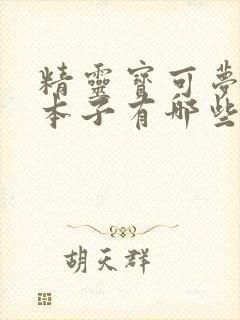 精靈寶可夢
本子有哪些
胡天群